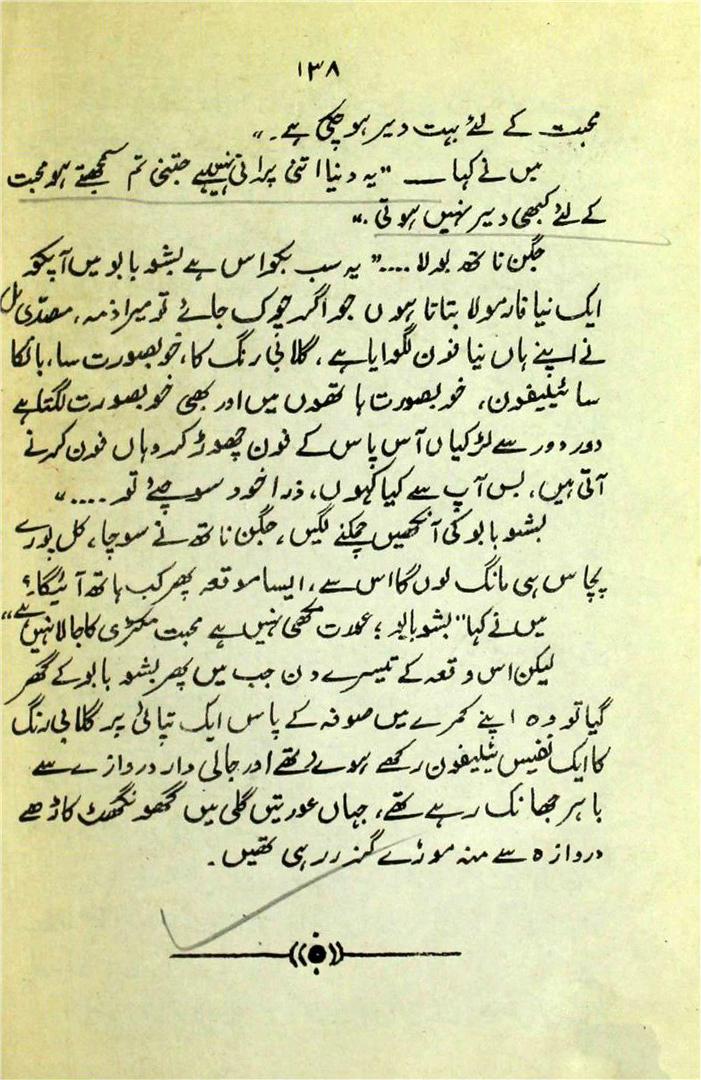 ۱۳۸
محبت کے لئے بہت دیر ہو چکی ہے۔"
میں نے کہا — "یہ دنیا اتنی پرانی نہیں ہے جتنی تم سمجھتے ہو محبت
کے لئے کبھی دیر نہیں ہوتی۔"
جگن ناتھ بولا .... "یہ سب بکواس ہے بشو بابو میں آپکو
ایک نیا فارمولا بتاتا ہوں جو اگر چوک جائے تو میرا ذمہ، مصدّی لال
نے اپنے ہاں نیا فون لگوایا ہے، گلابی رنگ کا، خوبصورت سا، بانکا
سا ٹیلیفون، خوبصورت ہاتھوں میں اور بھی خوبصورت لگتا ہے
دور دور سے لڑکیاں آس پاس کے فون چھوڑ کر وہاں فون کرنے
آتی ہیں، بس آپ سے کیا کہوں، ذرا خود سوچئے تو ...."
بشو بابو کی آنکھیں چمکنے لگیں، جگن ناتھ نے سوچا، کل پورے
پچاس ہی مانگ لوں گا اس سے، ایسا موقعہ پھر کب ہاتھ آئیگا؟
میں نے کہا "بشو بابو! عورت مکھی نہیں ہے محبت مکڑی کا جالا نہیں ہے"
لیکن اس وقعہ کے تیسرے دن جب میں پھر بشو بابو کے گھر
گیا تو وہ اپنے کمرے میں صوفہ کے پاس ایک تپائی پر گلابی رنگ
کا ایک نفیس ٹیلیفون رکھے ہوے تھے اور جالی دار دروازے سے
باہر جھانک رہے تھے، جہاں عورتیں گلی میں گھونگھٹ کاڑھے
دروازہ سے منہ موڑے گزر رہی تھیں۔